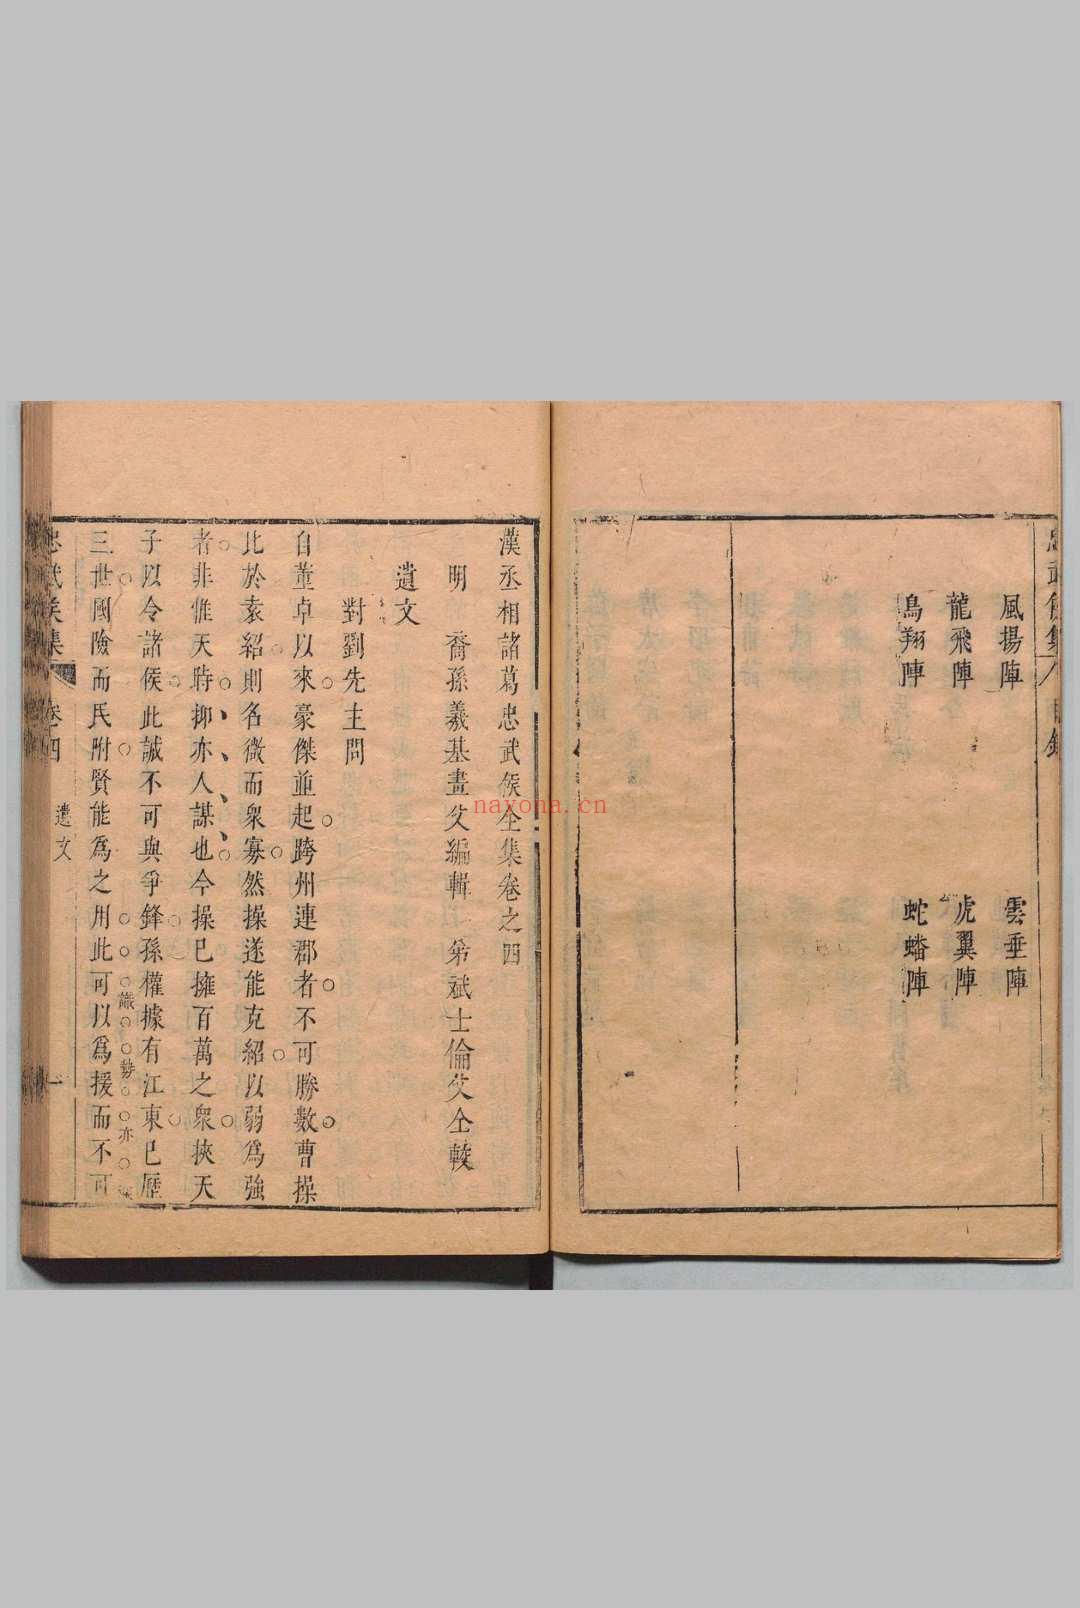 風揚陣　雲垂陣
龍飛陣　虎翼陣
鳥翔陣　蛇蟠陣
漢丞相諸葛忠武侯全集卷之四
明　裔孫羲基畫父編輯　弟斌士倫父仝較
遺文
對劉先主問
自董卓以來豪傑並起跨州連郡者不可勝數曹操
比於袁紹則名微而衆寡然操遂能克紹以弱爲強
者非惟天時抑亦人謀也今操已擁百萬之衆挾天
子以令諸侯此誠不可與爭鋒孫權據有江東已歷
三世國險而民附賢能爲之用此可以爲援而不可
識勢亦
忠武侯集　卷四　遺文　一
nayona.cn